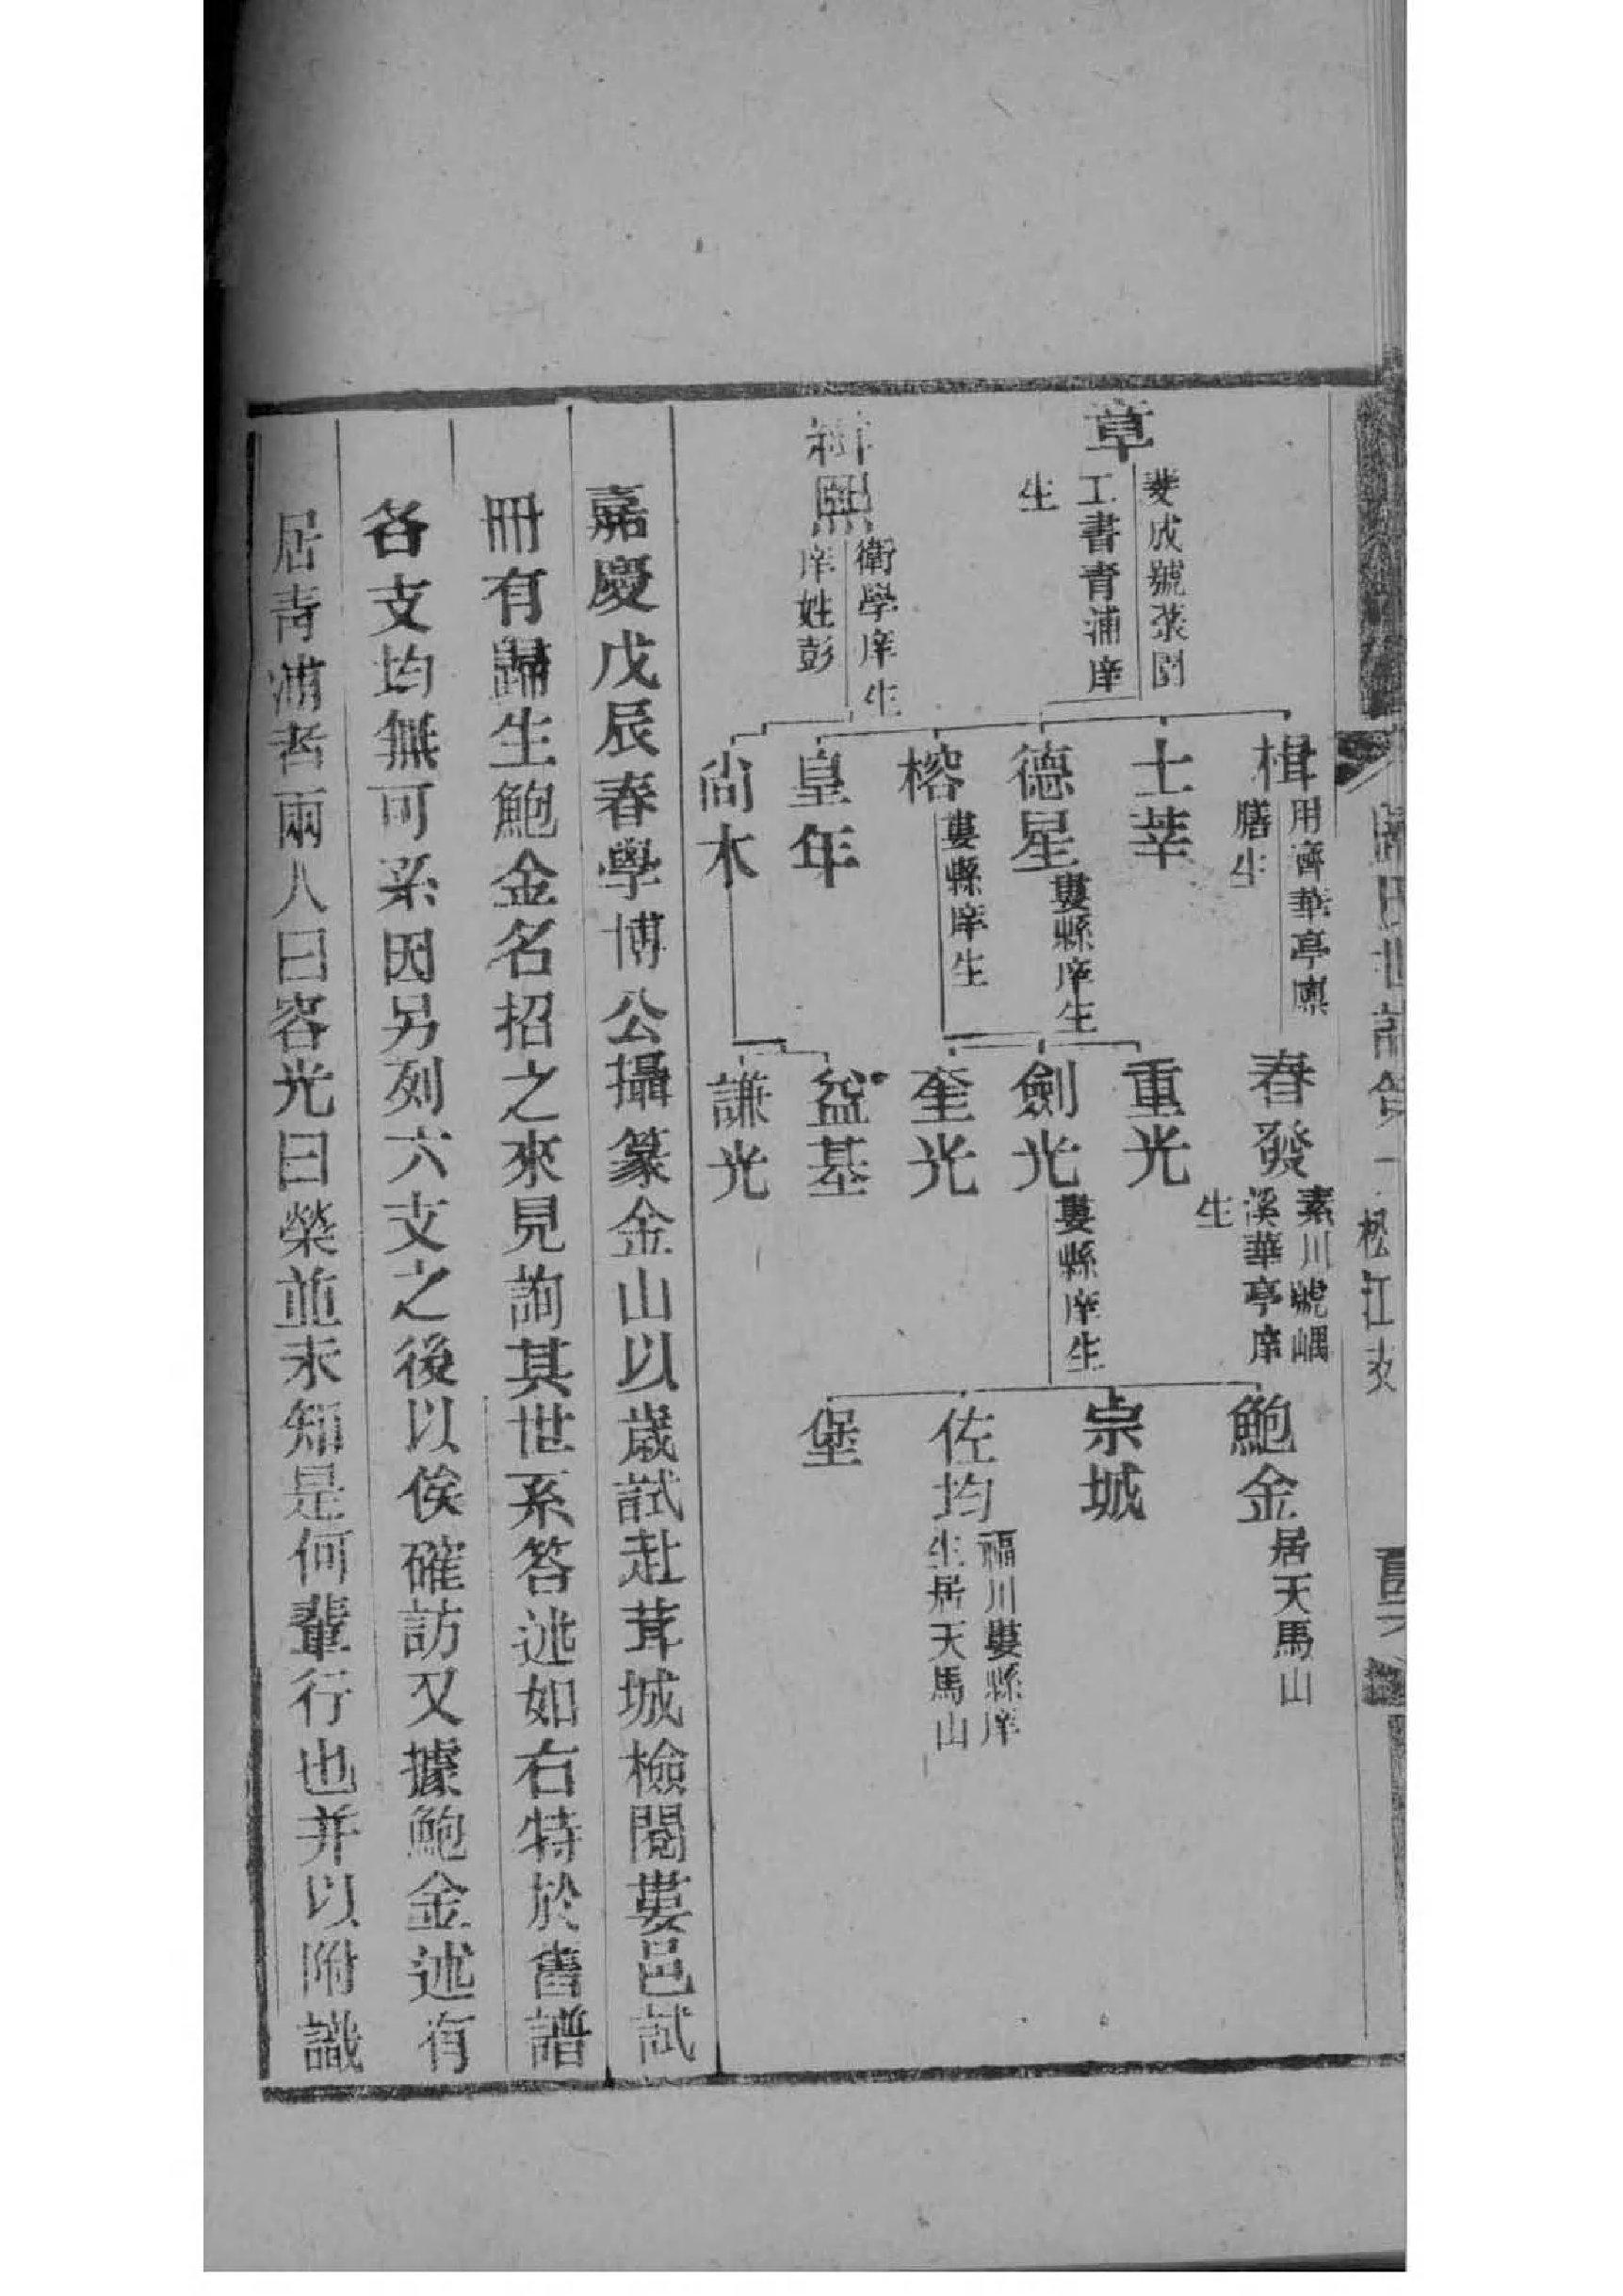 歸氏世譜卷一 松江支
章
斐成號棻園
工書青浦庠
生
楫
用濟華亭廩
膳生
士莘
德星
婁縣庠生
榕
婁縣庠生
皇年
春發
素川號嵎
溪華亭庠
生
重光
劍光
婁縣庠生
奎光
鮑金
居天馬山
宗城
佐均
福川婁縣庠
生居天馬山
堡
熙
衛學庠生
庠姓彭
尚木
益基
謙光
嘉慶戊辰春學博公攝篆金山以歲試赴茸城檢閱婁邑試
冊有歸生鮑金名招之來見詢其世系答述如右特於舊譜
各支均無可系因另列六支之後以俟確訪又據鮑金述有
居青浦者兩人曰容光曰榮並未知是何輩行也并以附識